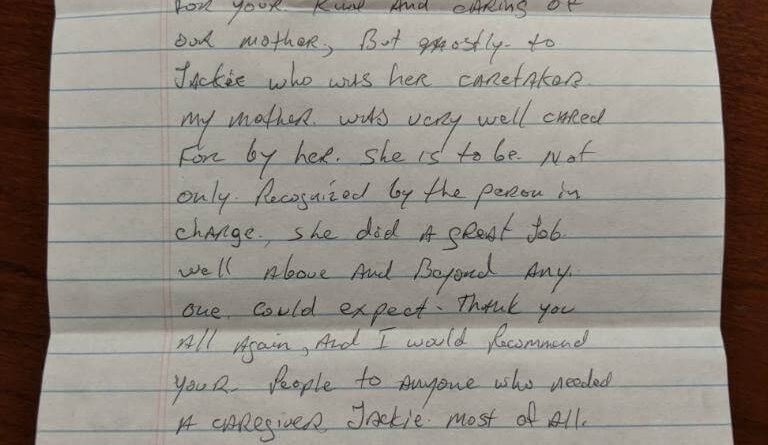 For your Kind And cARing of
our mother, But mostly to
JAckie who was her CAREtAKeR.
my mother. was very well CARed
For by her. She is to be Not
only. Recognized by the person in
chARge., she did A gReat Job.
well Above And Beyond Any.
one. Could expect. Thank you
All Again, And I would Recommend
youR People to Anyone who needed
A CAREgiver JAckie most of All.